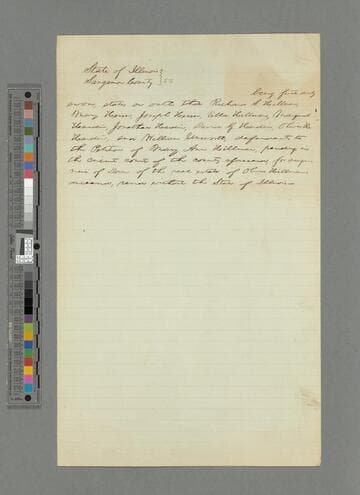 State of Illinois }
Sangamon County } SS
being first duly
sworn states on oath that Richard S Hillman
Mary House, Joseph House, Ella Hillman, Bridget
Jonathan
and William defendants to
the Petition of Mary Ann Hillman, pending in
the Circuit court of the county aforesaid for assign-
ment of Dower of the real estate of Oliver Hillman
deceased, reside without the State of Illinois